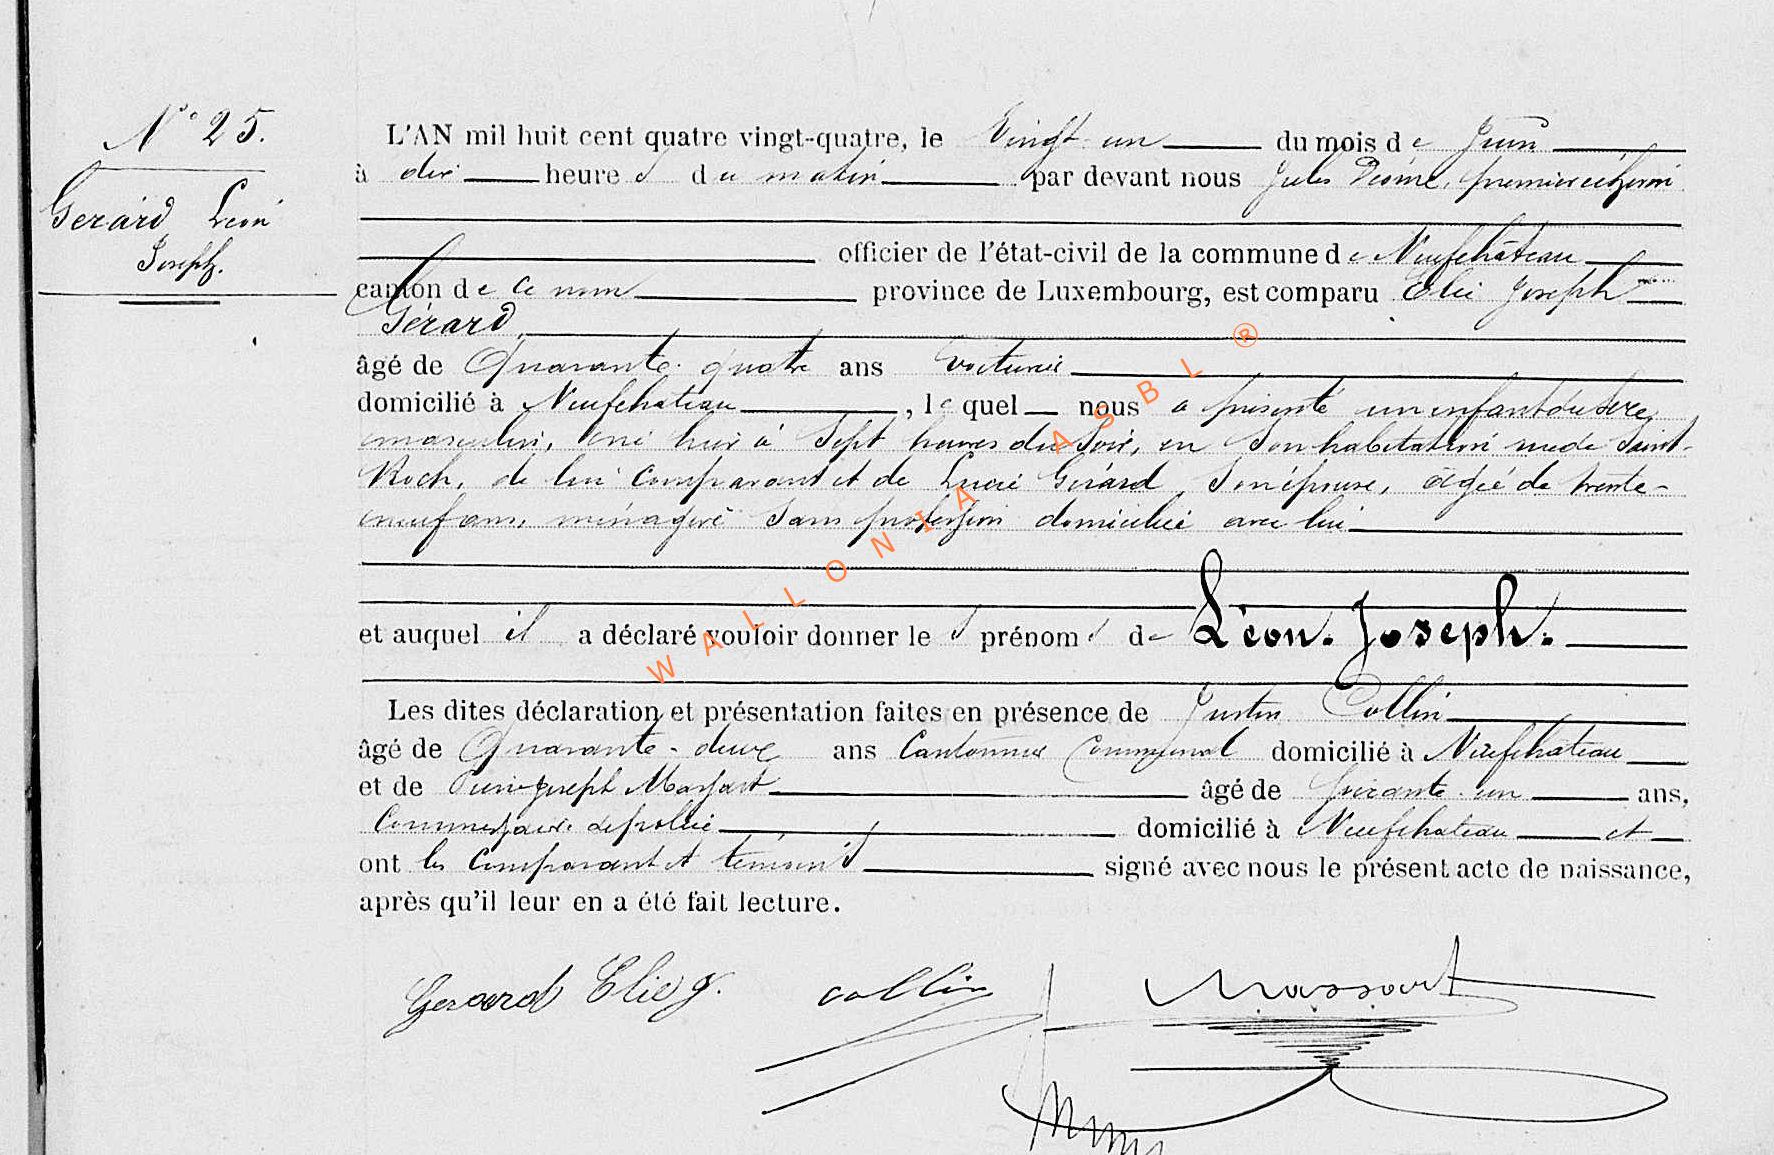 N° 25.
Gérard Léon
Joseph.
L'AN mil huit cent quatre vingt-quatre, le Vingt-un du mois de Juin
à dix heures du matin par devant nous Jules premier échevin
officier de l'état-civil de la commune de Neufchâteau
canton de ce nom province de Luxembourg, est comparu Elie Joseph
Gérard
âgé de Quarante-quatre ans voiturier
domicilié à Neufchateau, lequel nous a présenté un enfant du sexe
masculin, né hier à sept heures du soir, en son habitation rue de Saint-
Roch, de lui comparant et de Gérard son épouse, âgée de trente-
neuf ans, ménagère sans profession domiciliée avec lui
et auquel il a déclaré vouloir donner les prénoms de Léon. Joseph.
Les dites déclaration et présentation faites en présence de Justin Collin
âgé de Quarante-deux ans Cantonnier Communal domicilié à Neufchateau
et de Pierre Joseph Massart âgé de soixante-un ans,
Commissaire de police domicilié à Neufchateau et
ont les comparant et témoins signé avec nous le présent acte de naissance,
après qu'il leur en a été fait lecture.
Gerard Elie J. collin Massart
WALLONIA ASBL ®